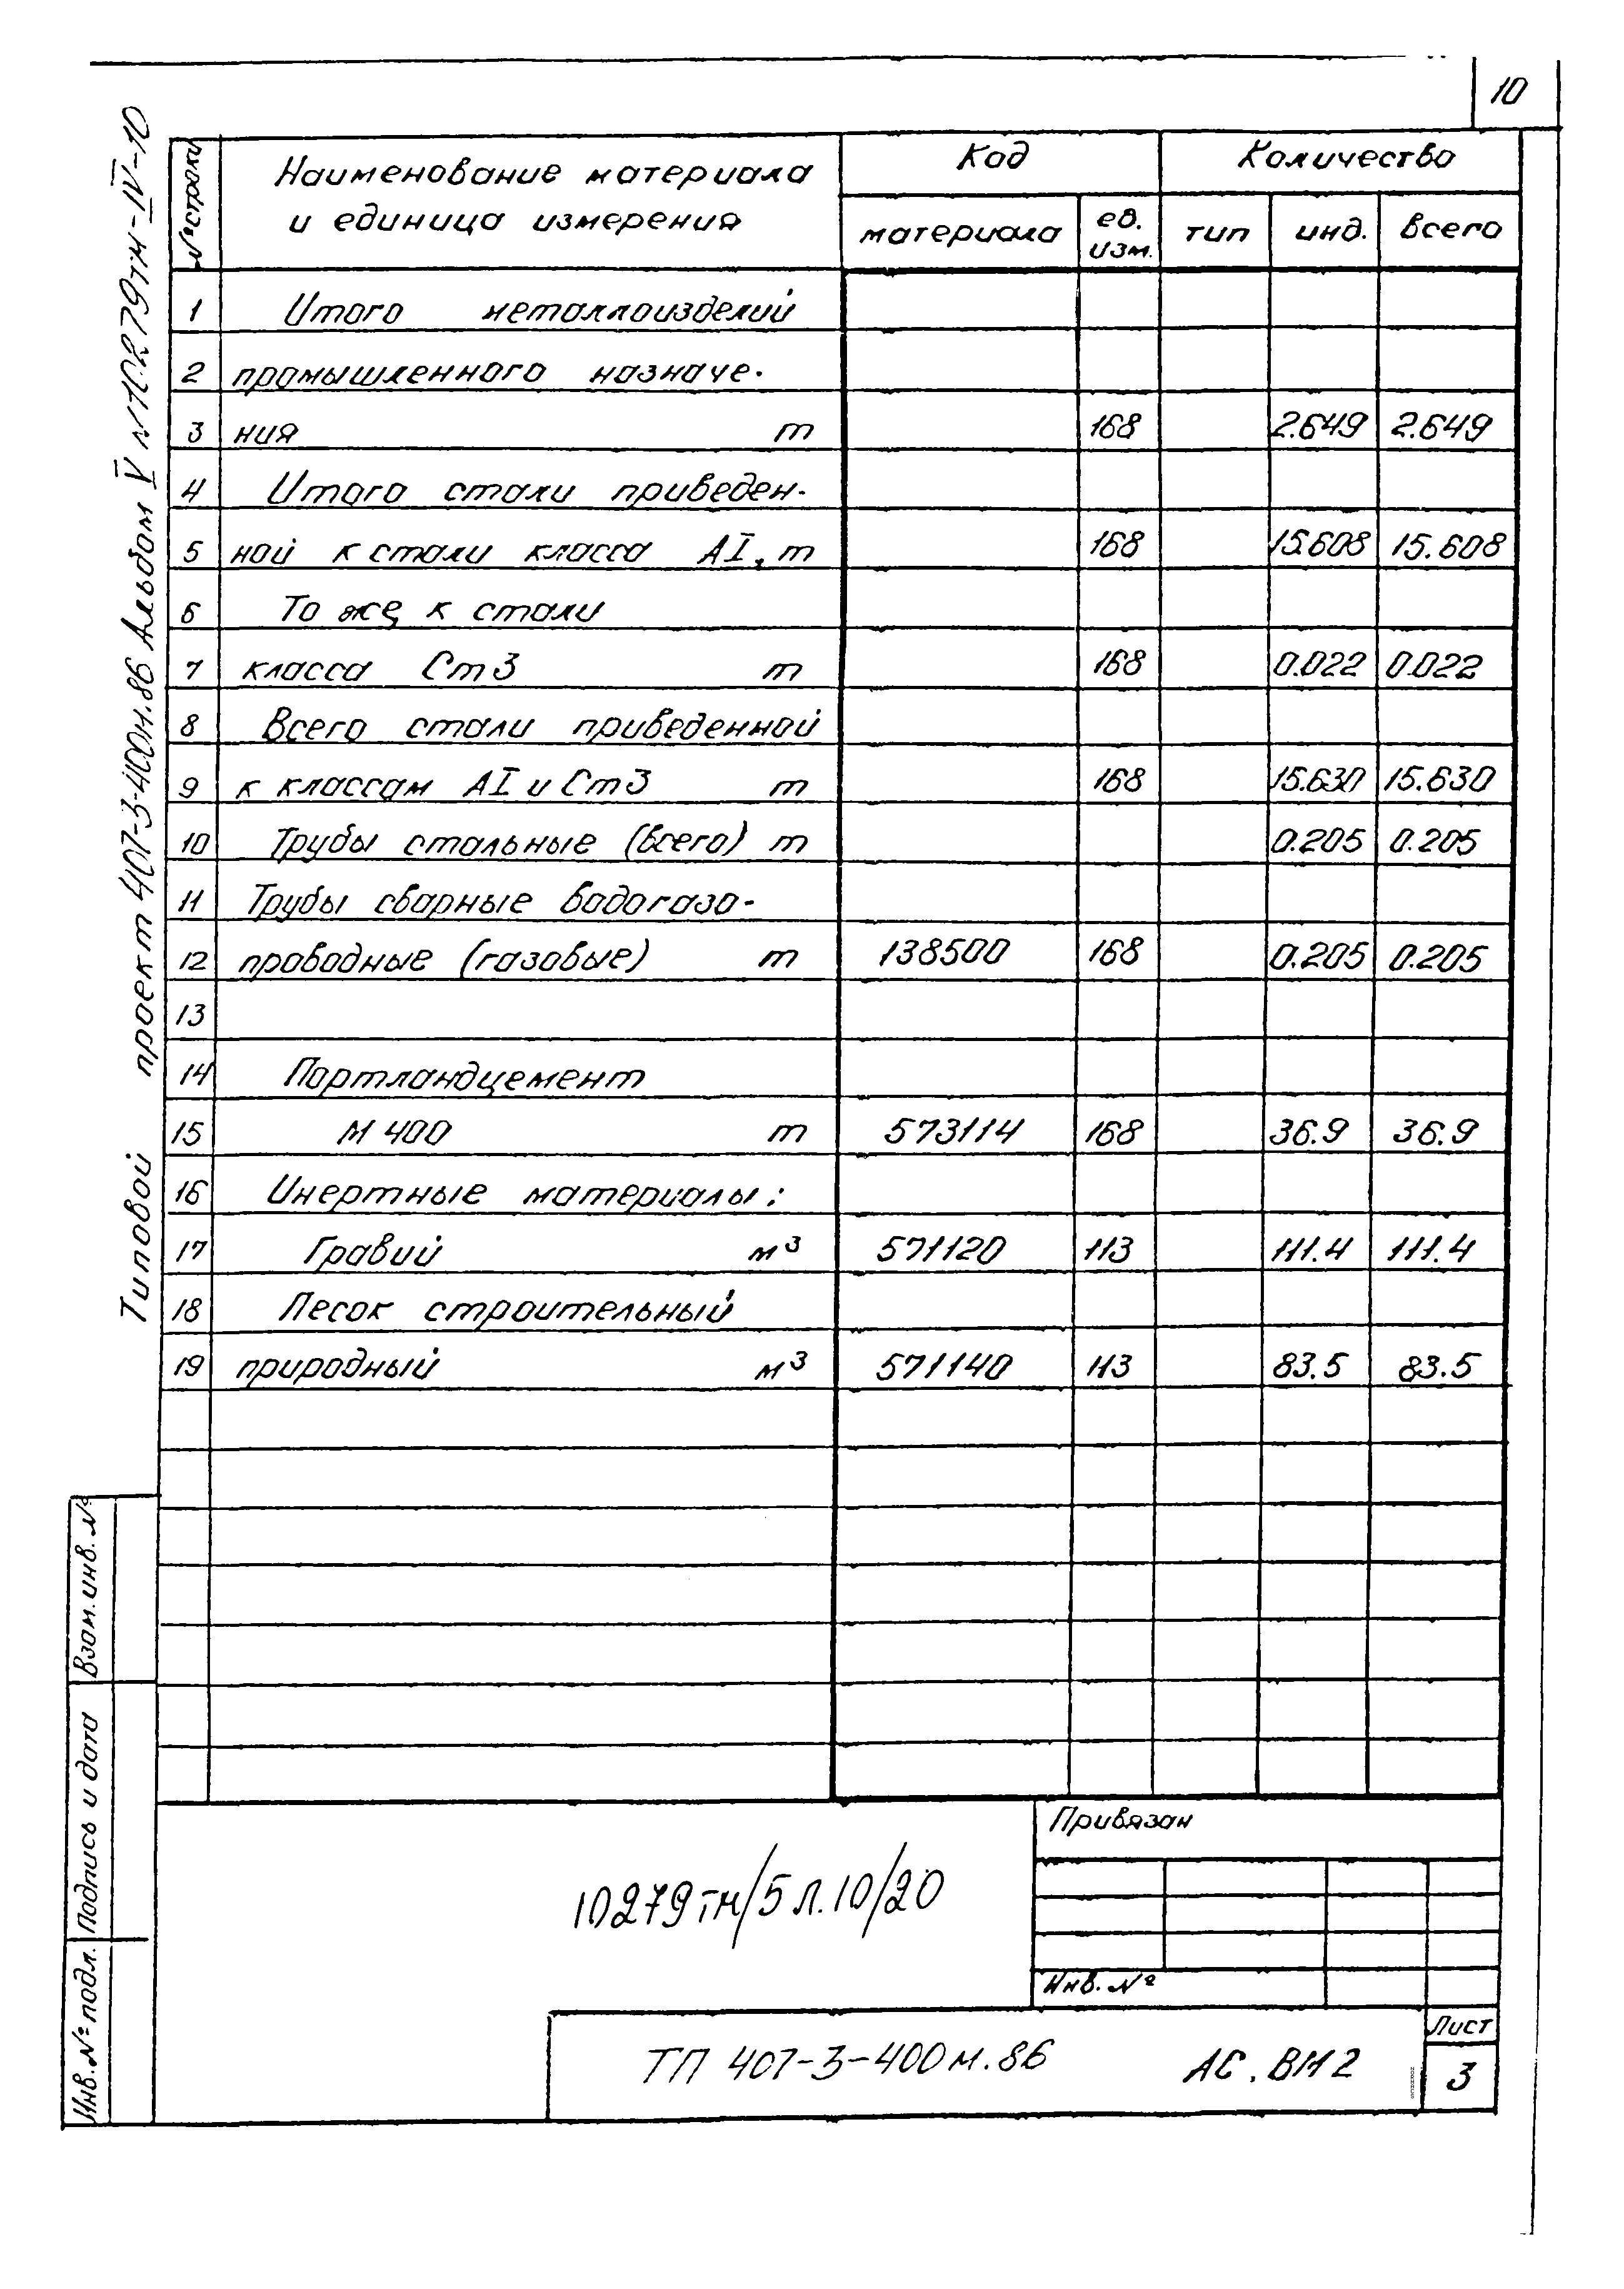 10
Типовой проект 407-3-400м.86 Альбом V №10279тм-IV-10
№ строки
Наименование материала
и единица измерения
Код
Количество
материала
ед.
изм.
тип
инд.
всего
1 Итого металлоизделий
2 промышленного назначе-
3 ния т 168 2.649 2.649
4 Итого стали приведен-
5 ной к стали класса АI, т 168 15.608 15.608
6 То же, к стали
7 класса Ст3 т 168 0.022 0.022
8 Всего стали приведенной
9 к классам АI и Ст3 т 168 15.630 15.630
10 Трубы стальные (всего) т 0.205 0.205
11 Трубы сварные водогазо-
12 проводные (газовые) т 138500 168 0.205 0.205
13
14 Портландцемент
15 М 400 т 573114 168 36.9 36.9
16 Инертные материалы:
17 Гравий м³ 571120 113 111.4 111.4
18 Песок строительный
19 природный м³ 571140 113 83.5 83.5
Взам. инв. №
Подпись и дата
Инв. № подл.
Привязан
10279тм/5 л.10/20
Инв. №
ТП 407-3-400м.86 АС.ВМ2
Лист
3